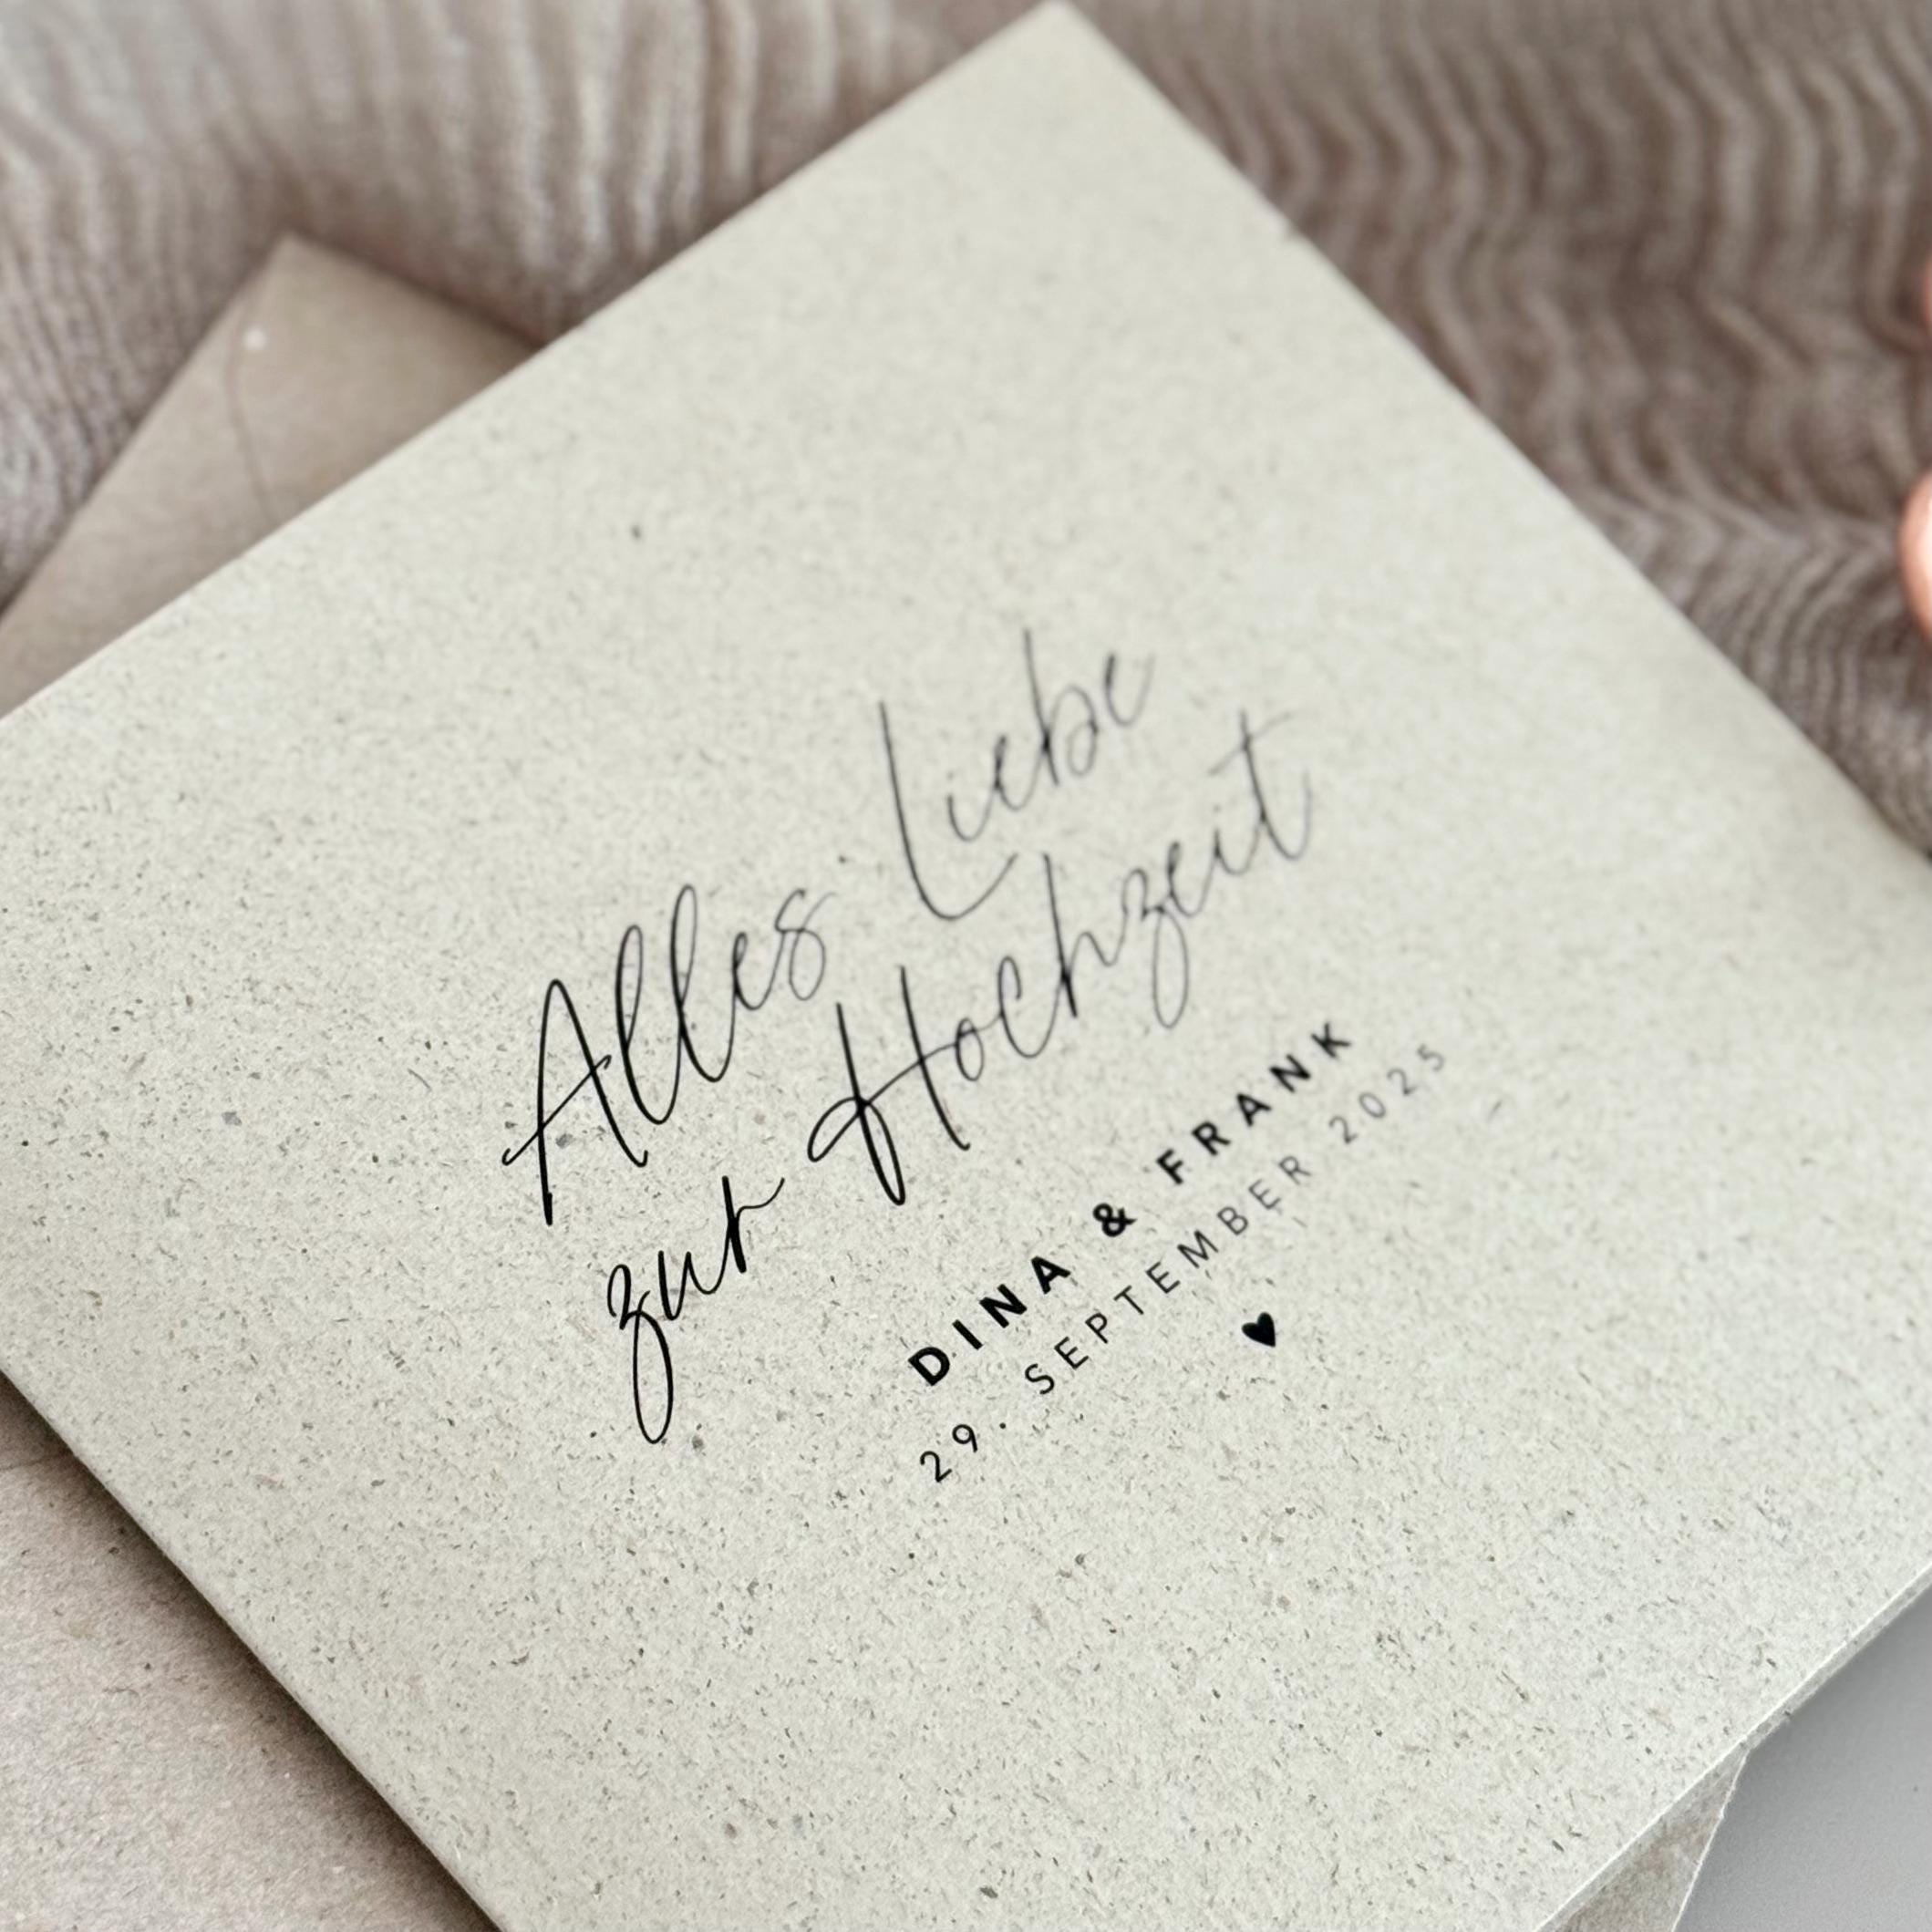 Alles Liebe
zur Hochzeit
DINA & FRANK
29. SEPTEMBER 2025